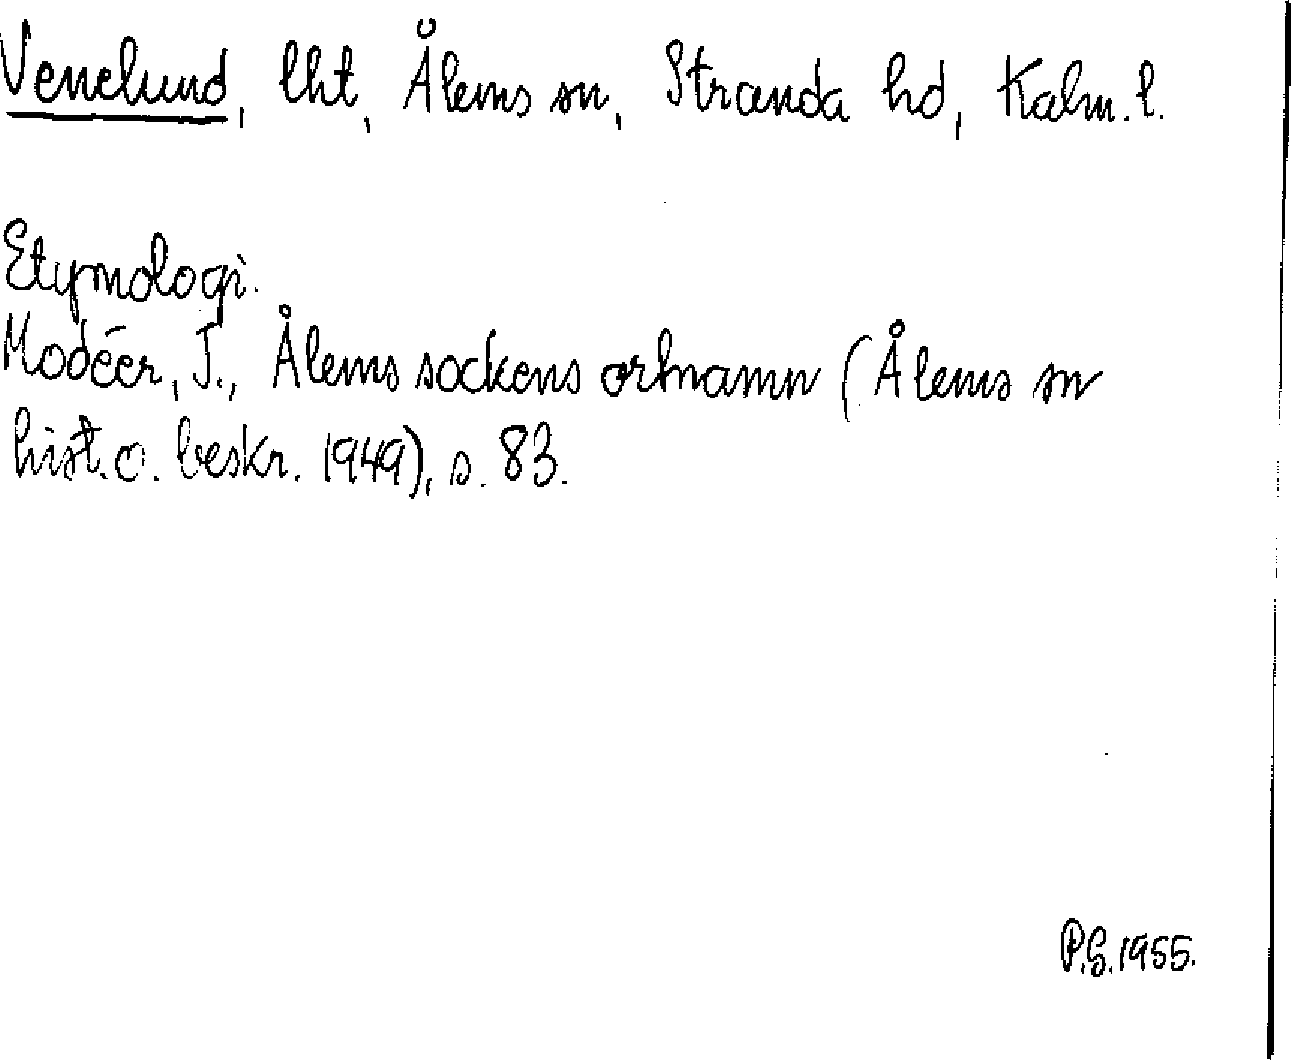 Venelund, lht, Ålems sn, Stranda hd, Kalm. l.
Etymologi.
Modéer, I., Ålems sockens ortnamn (Ålems sn
hist. o. beskr. 1949), s. 83.
P.G. 1955.